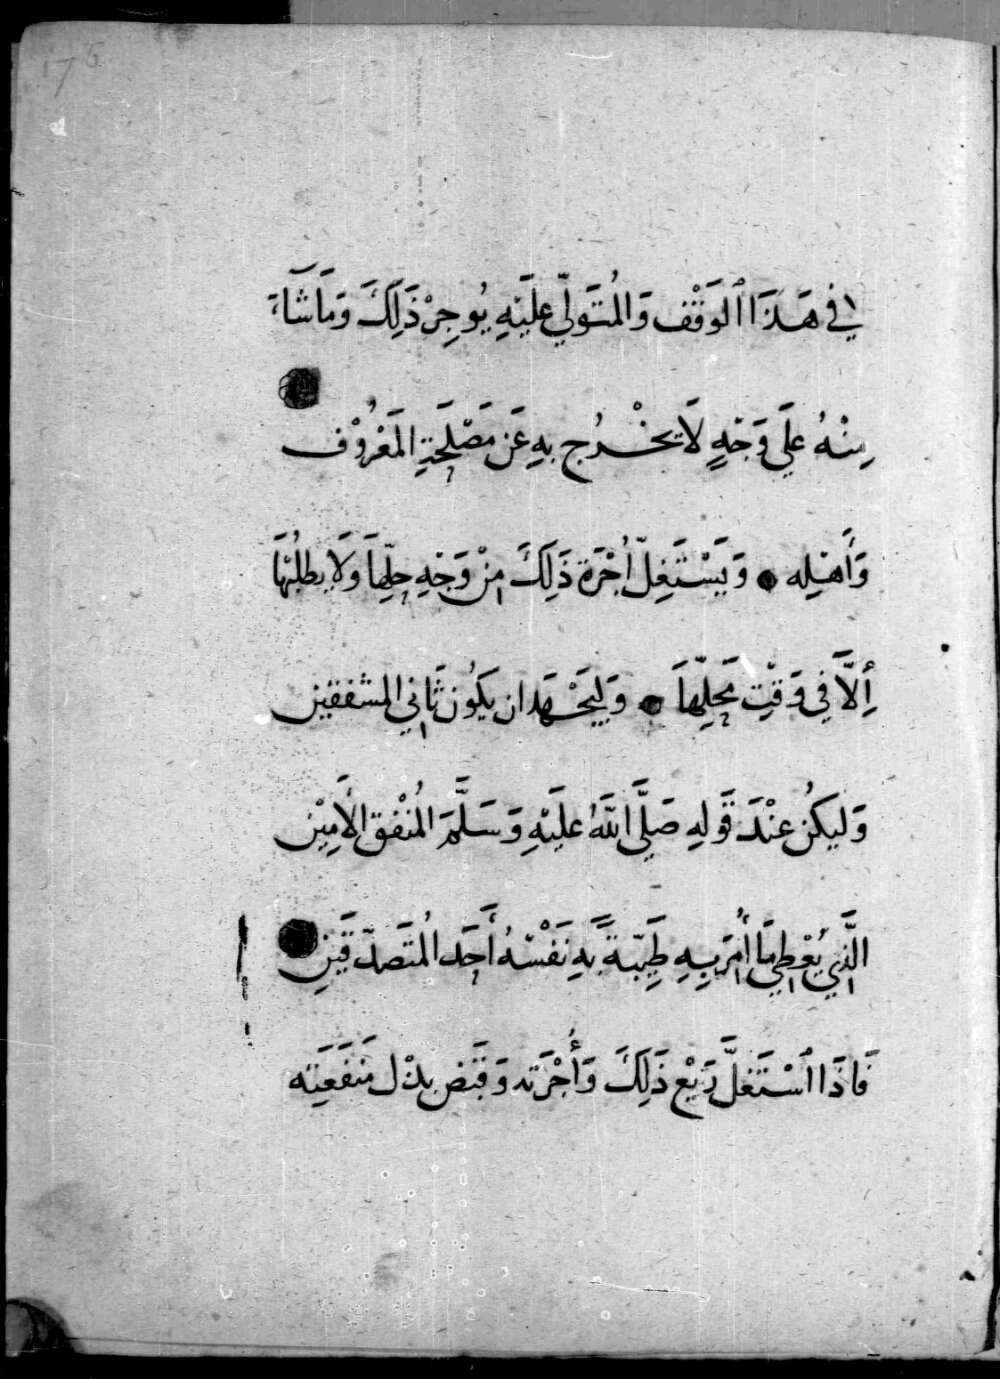 176
في هَذَا ٱلوَقْفِ وَالمُتَوَلِّي عَلَيْهِ يُوجِرْ ذَلِكَ وَمَا شَآءَ
مِنْهُ عَلَي وَجْهٍ لَا يَخْرُج بِهِ عَن مَصْلَحَةِ المَعْرُوْفِ
وَأَهْلِه ● وَيَسْتَغِلّ أُجْرَة ذَلِكَ مِنْ وَجْهِ حِلِّهَا وَلَا يطلُبُهَا
أِلَّا فِي وَقْتِ مَحِلِّهَا ● وَليَجْهَد ان يَكُون ثَانِي المشفقين
وَليَكُن عِنْدَ قَولِهِ صَلَّي ٱللَّهُ عَلَيْهِ وَسَلَّمَ المُنْفِق الأَمِيْن
الَّذِي يُعْطِي مَا أُمِرَ بِهِ طَيِّبَةً بِهِ نَفْسُهُ أَحَد المُتَصَدِّقَيْنِ
فَاذَا ٱسْتَغَلَّ رَيْع ذَلِكَ وَأُجْرَته وَقَبَض بدْل مَنفَعَتِه